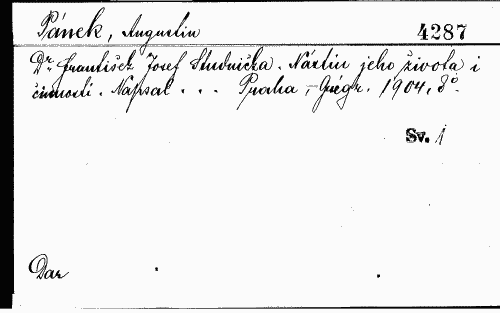 Pánek, Augustin
4287
Dr. František Josef Studnička. Nástin jeho života i
činnosti. Napsal . . . Praha, Grégr. 1904. 8°.
Sv. 1
Dar